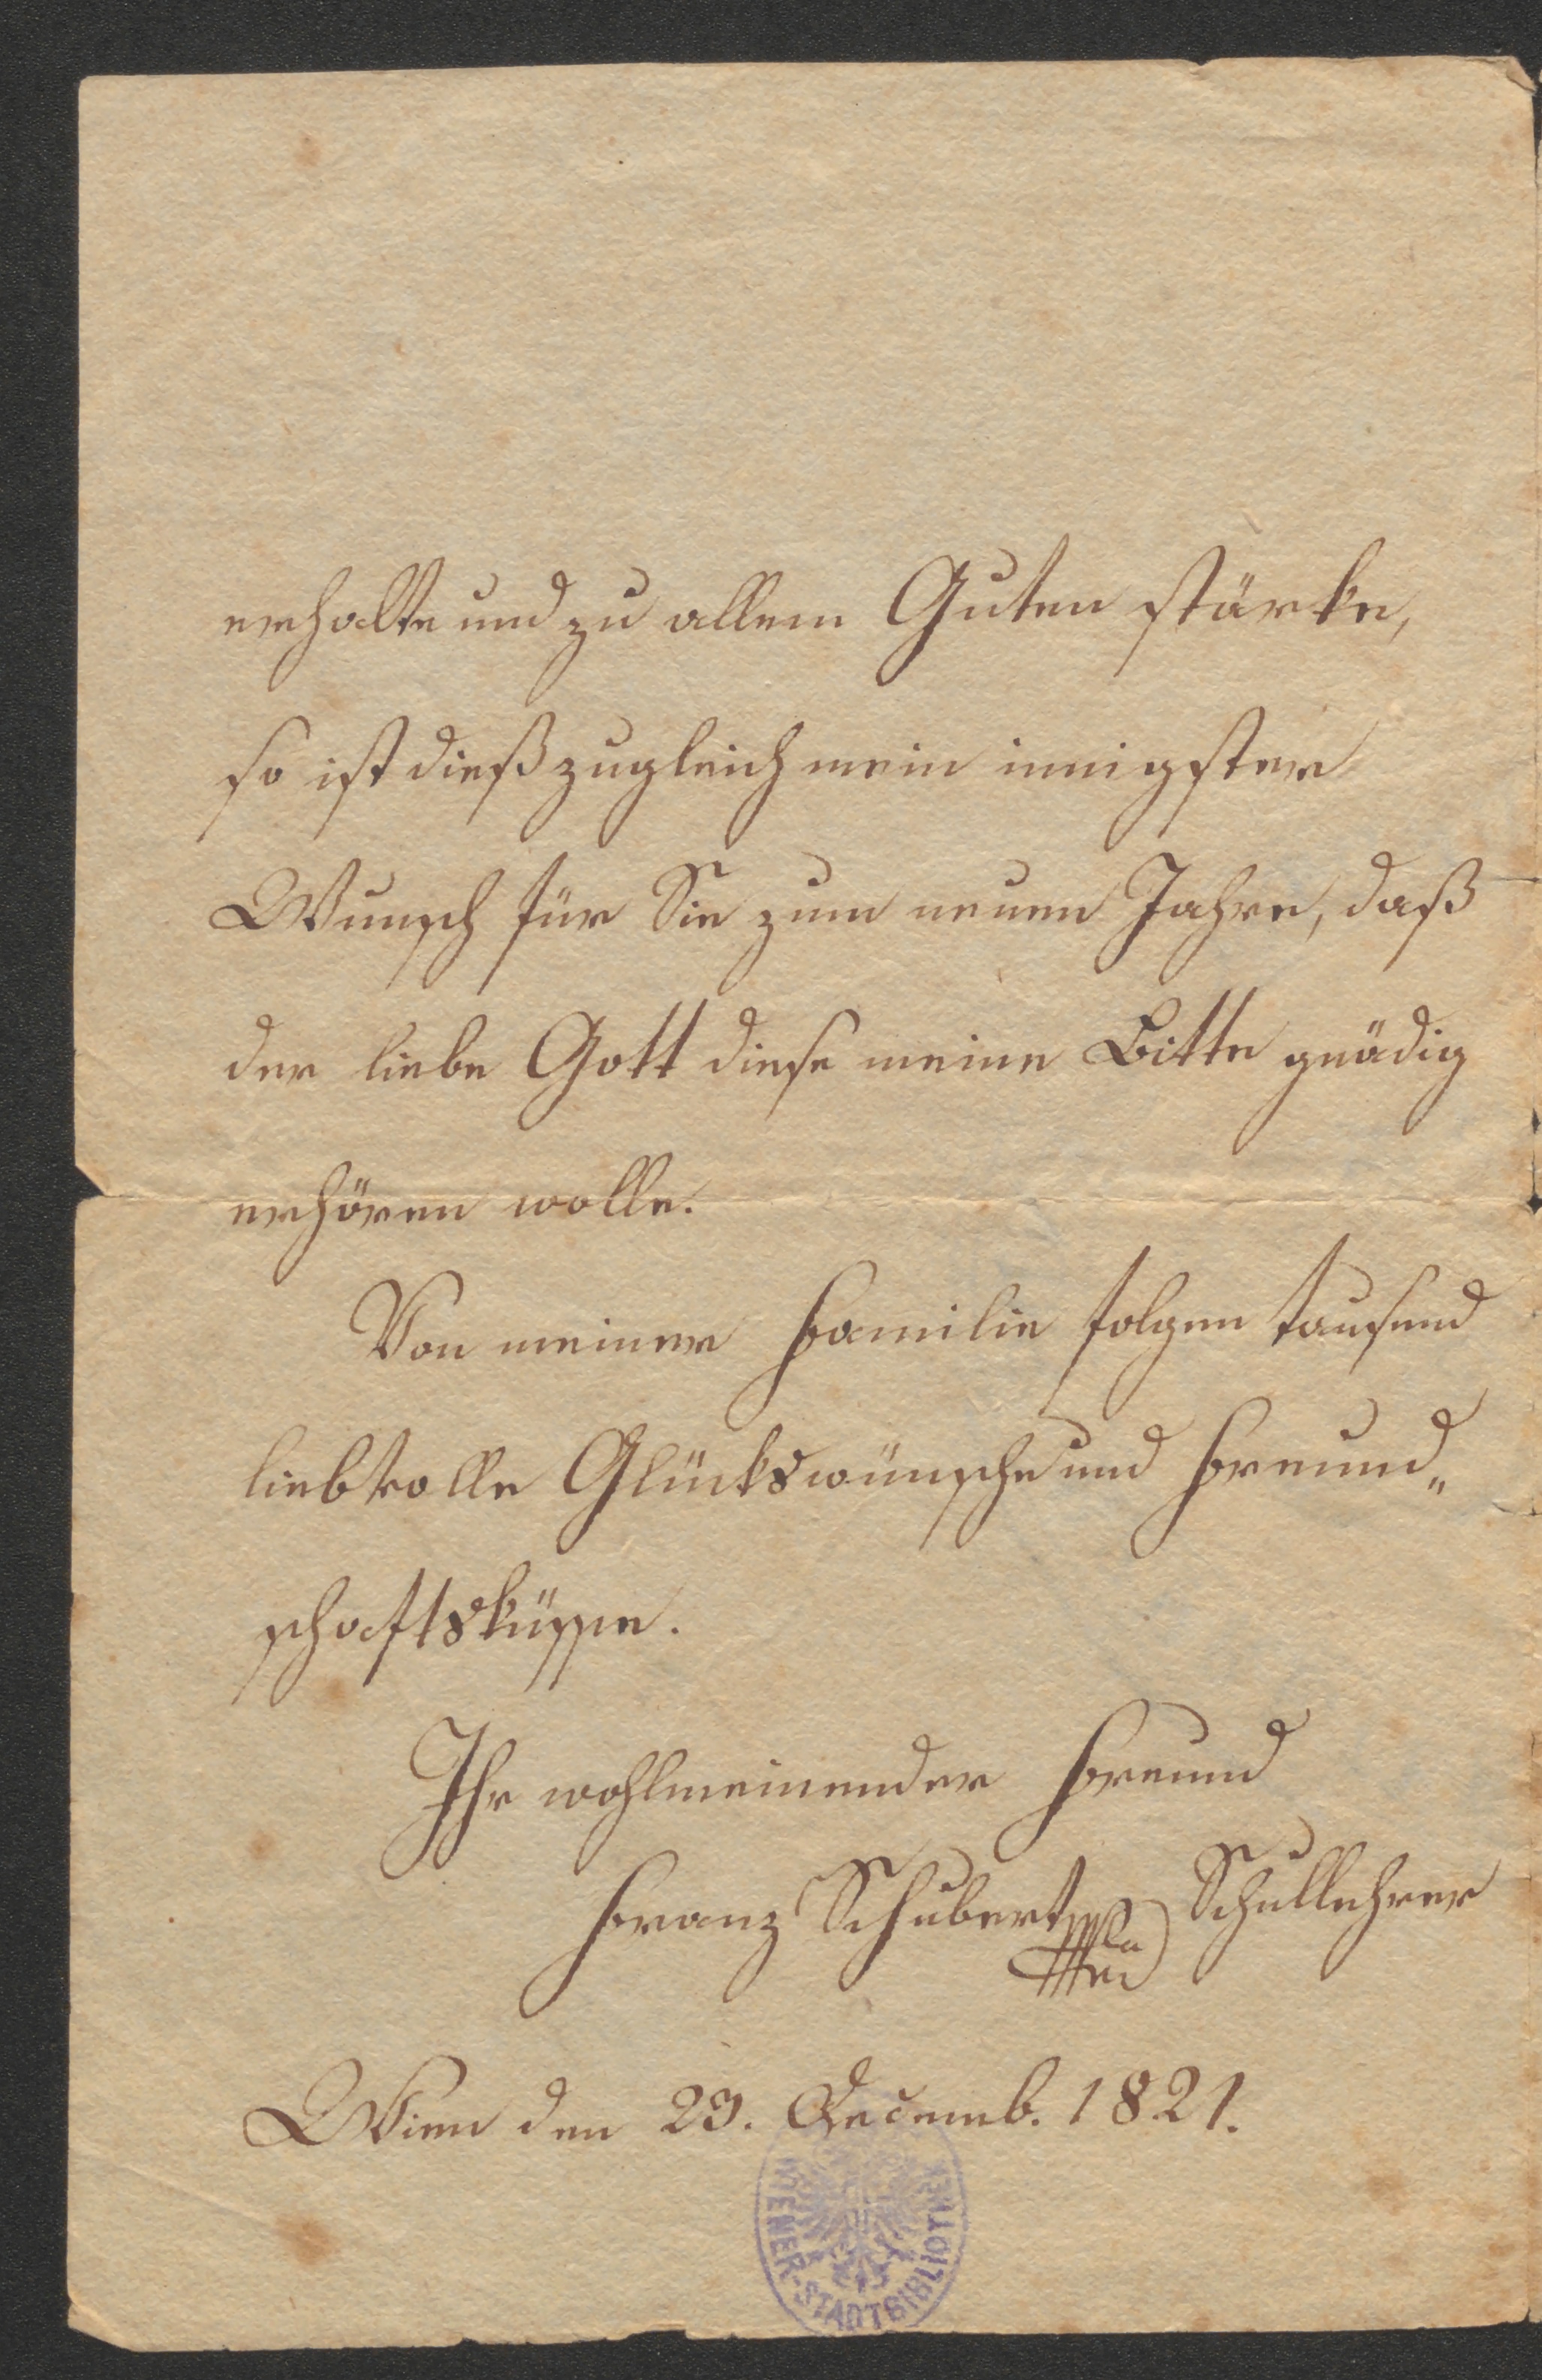 erhalte und zu allem Guten stärke,
so ist dieß zugleich mein innigster
Wunsch für Sie zum neuen Jahre, daß
der liebe Gott diese meine Bitte gnädig
erhören wolle.
Von meiner Familie folgen tausend
liebvolle Glückswünsche und Freund„
schaftsküsse.
Ihr wohlmeinender Freund
Franz Schubert Schullehrer
Wien den 29. Decemb. 1821.
WIENER-STADTBIBLIOTHEK